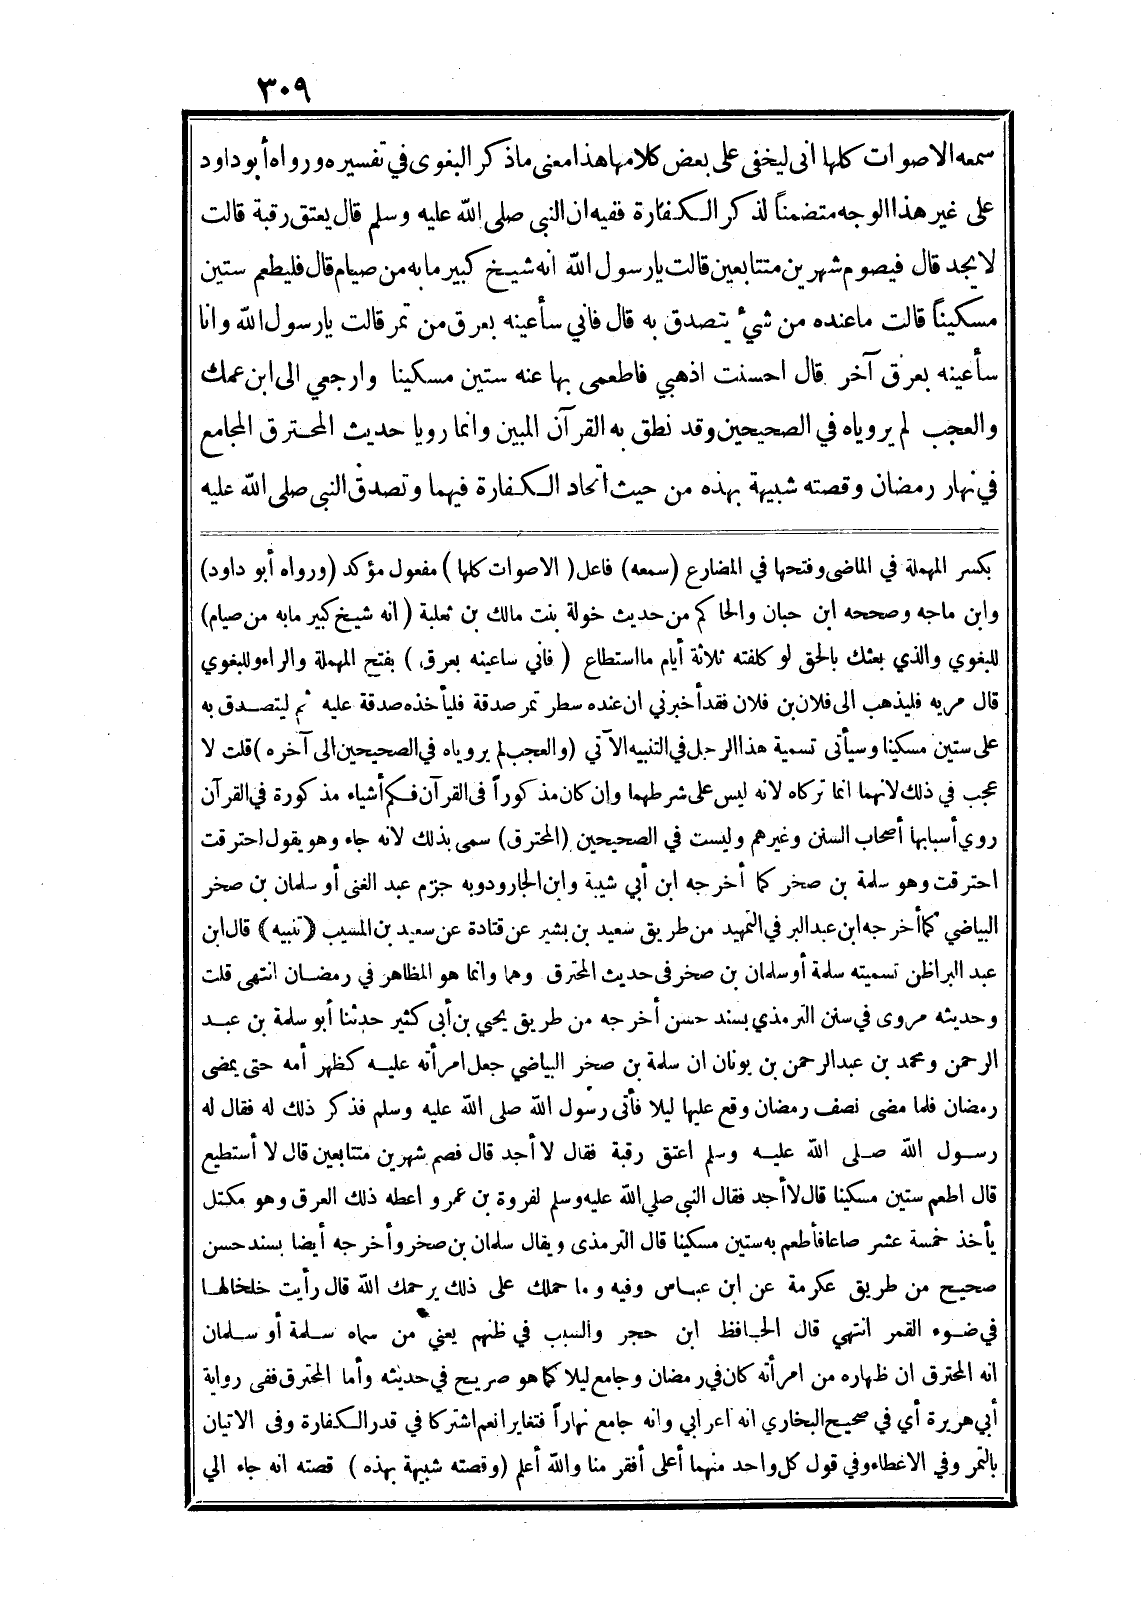 ٣٠٩
سمعه الاصوات كلها انى ليخفى على بعض كلامها هذا معنى ماذكر البغوى في تفسيره ورواه أبو داود
على غير هذا الوجه متضمناً لذكر الكفارة ففيه ان النبي صلى الله عليه وسلم قال يعتق رقبة قالت
لا يجد قال فيصوم شهرين متتابعين قالت يارسول الله انه شيخ كبير مابه من صيام قال فليطعم ستين
مسكيناً قالت ماعنده من شيء يتصدق به قال فاني سأعينه بعرق من تمر قالت يارسول الله وانا
سأعينه بعرق آخر قال احسنت اذهبي فاطعمى بها عنه ستين مسكينا وارجعي الى ابن عمك
والعجب لم يروياه في الصحيحين وقد نطق به القرآن المبين وانما رويا حديث المحترق المجامع
في نهار رمضان وقصته شبيهة بهذه من حيث اتحاد الكفارة فيهما وتصدق النبي صلى الله عليه
بكسر المهملة في الماضى وفتحها في المضارع (سمعه) فاعل (الاصوات كلها) مفعول مؤكد (ورواه أبو داود)
وابن ماجه وصححه ابن حبان والحاكم من حديث خولة بنت مالك بن ثعلبة (انه شيخ كبير مابه من صيام)
للبغوي والذي بعثك بالحق لو كلفته ثلاثة أيام مااستطاع (فاني ساعينه بعرق) بفتح المهملة والراء وللبغوي
قال مريه فليذهب الى فلان بن فلان فقد أخبرني ان عنده سطر تمر صدقة فليأخذه صدقة عليه ثم ليتصدق به
على ستين مسكينا وسيأتى تسمية هذا الرجل في التنبيه الآتي (والعجب لم يروياه في الصحيحين الى آخره) قلت لا
عجب في ذلك لانهما انما تركاه لانه ليس على شرطهما وإن كان مذكوراً فى القرآن فكم أشياء مذكورة في القرآن
روي أسبابها أصحاب السنن وغيرهم وليست في الصحيحين (المحترق) سمى بذلك لانه جاء وهو يقول احترقت
احترقت وهو سلمة بن صخر كما أخرجه ابن أبي شيبة وابن الجارود وبه جزم عبد الغنى أو سلمان بن صخر
البياضي كما أخرجه ابن عبد البر في التمهيد من طريق سعيد بن بشير عن قتادة عن سعيد بن المسيب (تنبيه) قال ابن
عبد البر اظن تسميته سلمة أو سلمان بن صخر فى حديث المحترق وهما وانما هو المظاهر في رمضان انتهى قلت
وحديثه مروى في سنن الترمذي بسند حسن أخرجه من طريق يحيي بن أبى كثير حدثنا أبو سلمة بن عبد
الرحمن ومحمد بن عبد الرحمن بن يونان ان سلمة بن صخر البياضي جعل امرأته عليه كظهر أمه حتى يمضى
رمضان فلما مضى نصف رمضان وقع عليها ليلا فأتى رسول الله صلى الله عليه وسلم فذكر ذلك له فقال له
رسول الله صلى الله عليه وسلم اعتق رقبة فقال لا أجد قال فصم شهرين متتابعين قال لا أستطيع
قال اطعم ستين مسكينا قال لا أجد فقال النبي صلي الله عليه وسلم لفروة بن عمرو اعطه ذلك العرق وهو مكتل
يأخذ خمسة عشر صاعا فأطعم به ستين مسكينا قال الترمذى ويقال سلمان بن صخر وأخرجه أيضا بسند حسن
صحيح من طريق عكرمة عن ابن عباس وفيه وما حملك على ذلك يرحمك الله قال رأيت خلخالها
في ضوء القمر انتهي قال الحافظ ابن حجر والسبب في ظنهم يعني من سماه سلمة أو سلمان
انه المحترق ان ظهاره من امرأته كان في رمضان وجامع ليلا كما هو صريح في حديثه وأما المحترق ففى رواية
أبي هريرة أي في صحيح البخاري انه اعرابي وانه جامع نهاراً فتغايرا نعم اشتركا في قدر الكفارة وفى الاتيان
بالتمر وفي الاغطاء وفي قول كل واحد منهما أعلى أفقر منا والله أعلم (وقصته شبيهة بهذه) قصته انه جاء الي